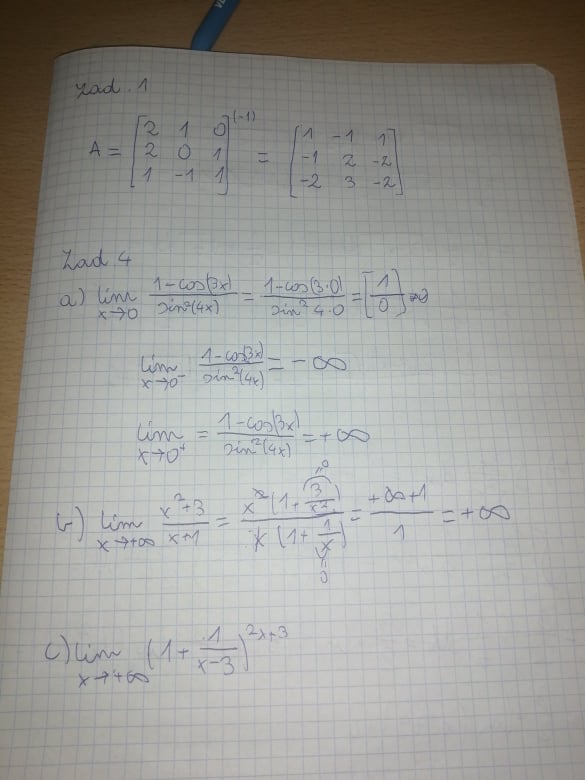 Zad. 1
A = [2 1 0; 2 0 1; 1 -1 1]^(-1) = [1 -1 1; -1 2 -2; -2 3 -2]
Zad 4
a) lim x→0 (1-cos(3x))/(sin²(4x)) = (1-cos(3·0))/(sin² 4·0) = [1/0]
lim x→0⁻ (1-cos(3x))/(sin²(4x)) = -∞
lim x→0⁺ = (1-cos(3x))/(sin²(4x)) = +∞
b) lim x→+∞ (x²+3)/(x+1) = (x²(1+3/x²))/(x(1+1/x)) = (+∞+1)/1 = +∞
c) lim x→+∞ (1+1/(x-3))^(2x+3)